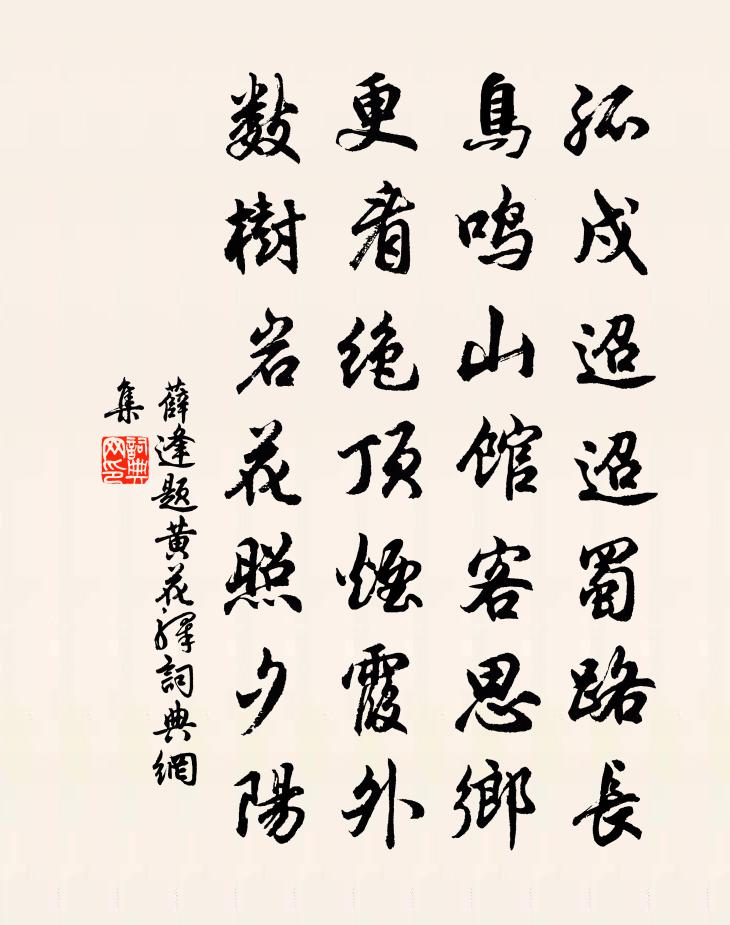 孤戍迢迢蜀路長
鳥鳴山館客思鄉
更看絶頂煙霞外
数樹岩花照夕陽
薛逢題黄花驛詞典網
集
詞典网印